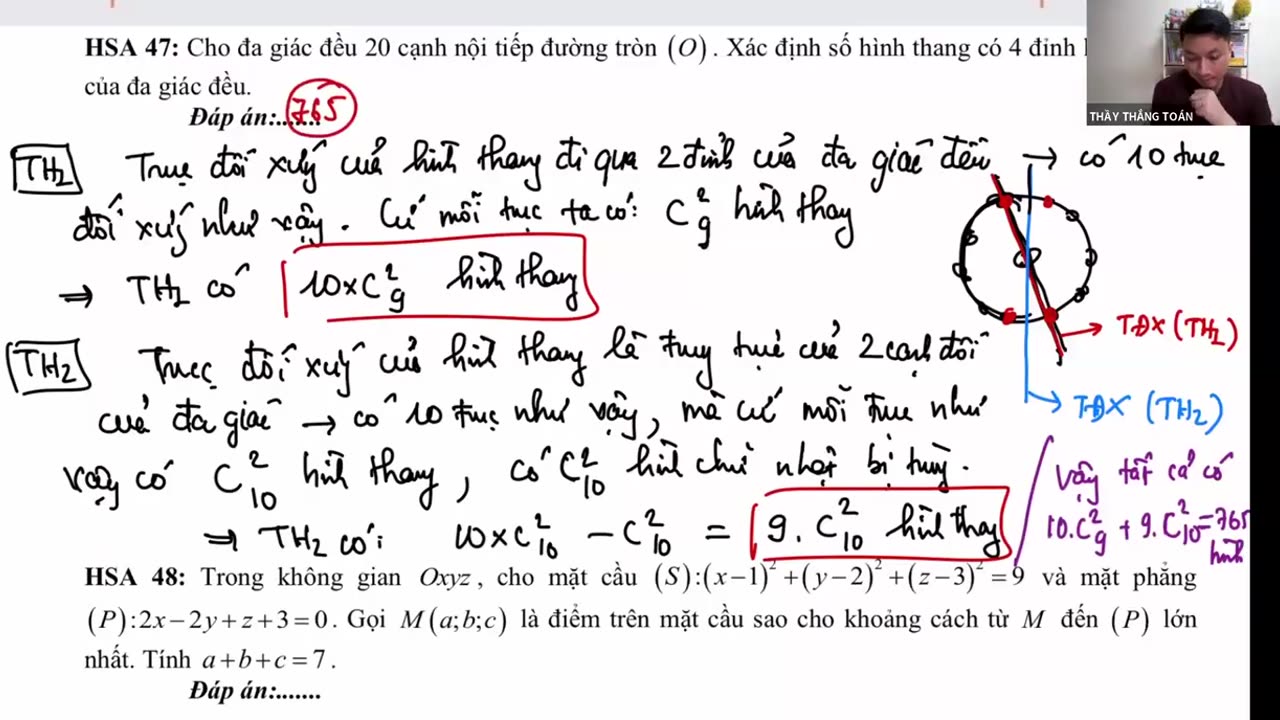 HSA 47: Cho đa giác đều 20 cạnh nội tiếp đường tròn (O). Xác định số hình thang có 4 đỉnh
của đa giác đều.
Đáp án:....... 765
THẦY THẮNG TOÁN
TH2 Trục đối xứng của hình thang đi qua 2 đỉnh của đa giác đều → có 10 trục
đối xứng như vậy. Cứ mỗi trục ta có: C₉² hình thang
⇒ TH2 có 10×C₉² hình thang
TĐX (TH2)
TH2 Trục đối xứng của hình thang là trung trực của 2 cạnh đối
của đa giác → có 10 trục như vậy, mà cứ mỗi trục như
TĐX (TH2)
vậy có C₁₀² hình thang, có C₁₀² hình chữ nhật bị trùng.
⇒ TH2 có: 10×C₁₀² − C₁₀² = 9.C₁₀² hình thang
Vậy tất cả có
10.C₉² + 9.C₁₀² = 765
hình
HSA 48: Trong không gian Oxyz, cho mặt cầu (S):(x−1)²+(y−2)²+(z−3)²=9 và mặt phẳng
(P):2x−2y+z+3=0. Gọi M(a;b;c) là điểm trên mặt cầu sao cho khoảng cách từ M đến (P) lớn
nhất. Tính a+b+c=7.
Đáp án:.......